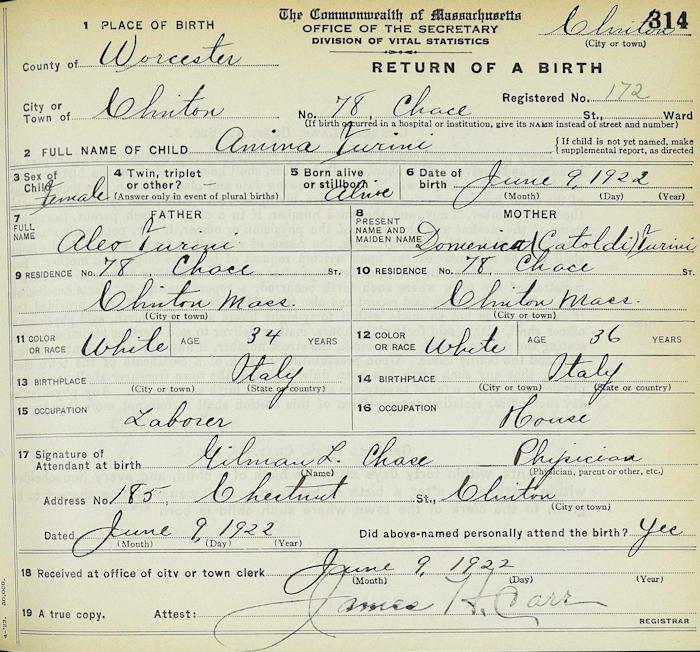 The Commonwealth of Massachusetts
OFFICE OF THE SECRETARY
DIVISION OF VITAL STATISTICS
314
Clinton
(City or town)
1 PLACE OF BIRTH
RETURN OF A BIRTH
County of Worcester
City or Town of Clinton
Registered No. 172
No. 78, Chace St., Ward
(If birth occurred in a hospital or institution, give its NAME instead of street and number)
2 FULL NAME OF CHILD Amina Turini
{If child is not yet named, make supplemental report, as directed
3 Sex of Child Female
4 Twin, triplet or other? –
(Answer only in event of plural births)
5 Born alive or stillborn Alive
6 Date of birth June 9, 1922
(Month) (Day) (Year)
7 FULL NAME
FATHER
Aleo Turini
8 PRESENT NAME AND MAIDEN NAME
MOTHER
Domenica (Gatoldi) Turini
9 RESIDENCE No. 78, Chace ST.
Clinton Mass.
(City or town)
10 RESIDENCE No. 78, Chace ST.
Clinton Mass.
(City or town)
11 COLOR OR RACE White AGE 34 YEARS
12 COLOR OR RACE White AGE 36 YEARS
13 BIRTHPLACE Italy
(City or town) (State or country)
14 BIRTHPLACE Italy
(City or town) (State or country)
15 OCCUPATION Laborer
16 OCCUPATION House
17 Signature of Attendant at birth Gilman L. Chase Physician
(Name) (Physician, parent or other, etc.)
Address No. 185 Chestnut St., Clinton
(City or town)
Dated June 9, 1922
(Month) (Day) (Year)
Did above-named personally attend the birth? Yes
18 Received at office of city or town clerk June 9, 1922
(Month) (Day) (Year)
19 A true copy. Attest: James H. Carr
REGISTRAR
4-'22. 50,000.